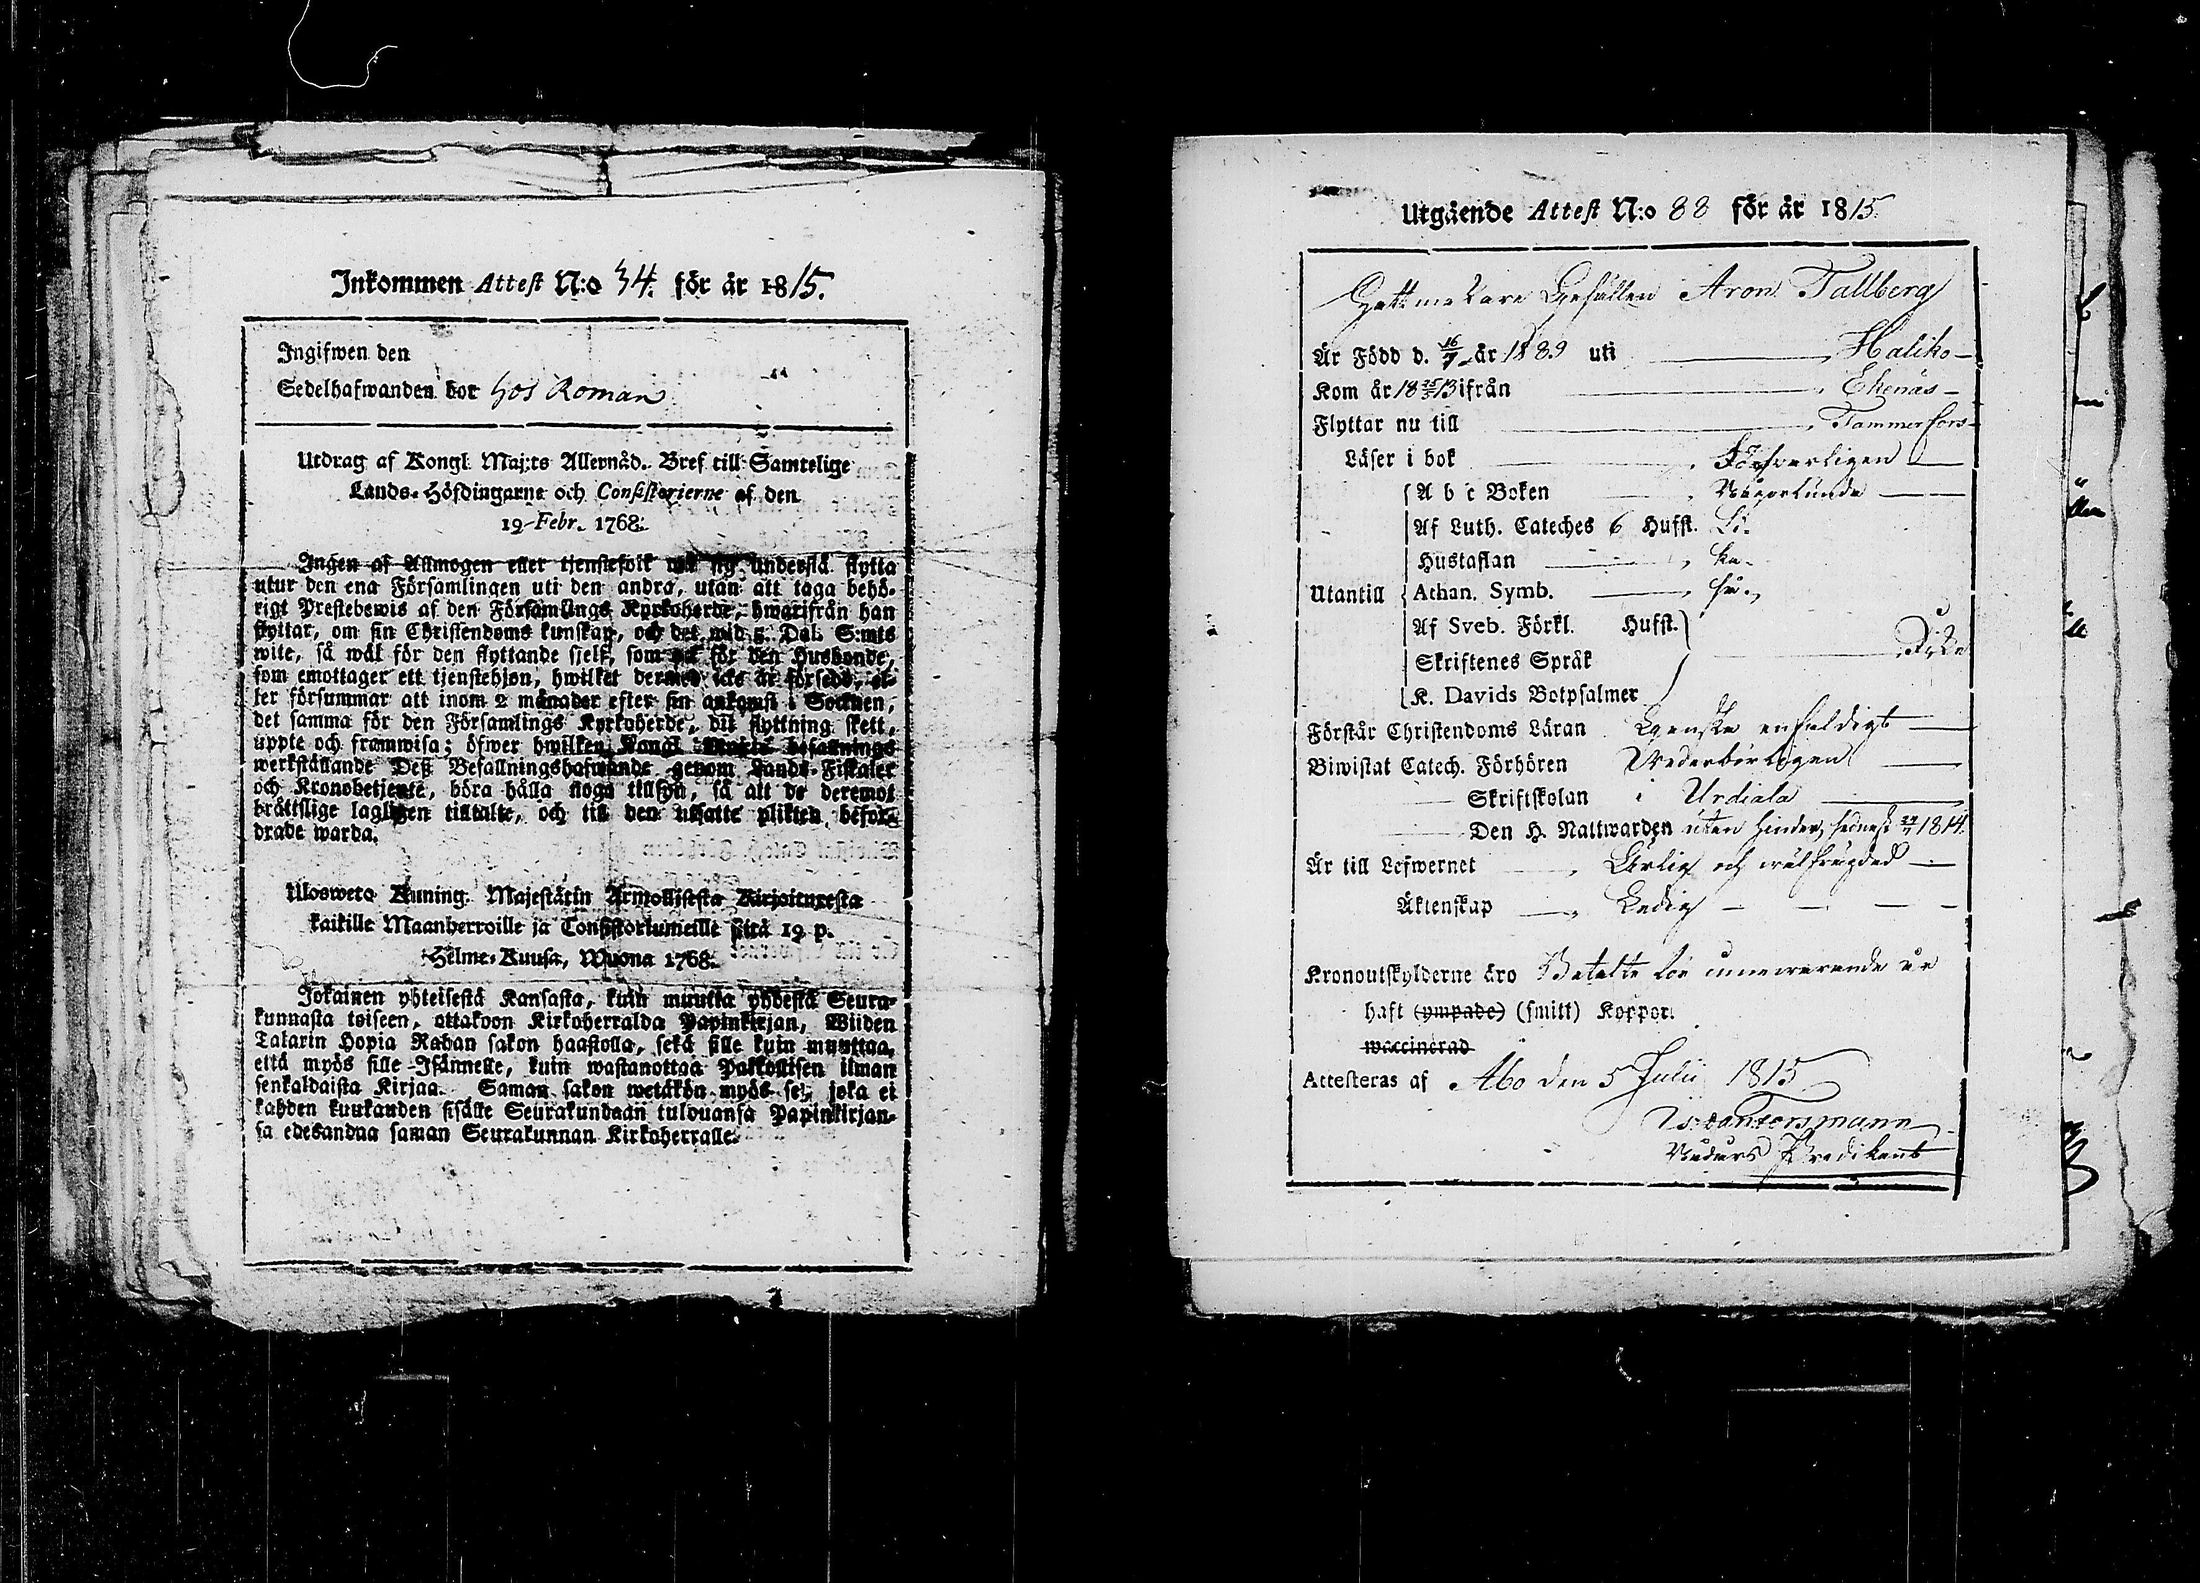 Inkommen Attest N:o 34. för år 1815.
Ingifwen den
Sedelhafwanden bor hos Roman
Utdrag af Kongl. Maj:ts Allernåd. Bref till Samtelige
Lands-Höfdingarne och Consistorierne af den
19 Febr. 1768.
Ingen af Allmogen eller tjenstefolk må sig understå flytta
utur den ena Församlingen uti den andra, utan att taga behö-
rigt Prestebewis af den Församlings Kyrkoherde, hwarifrån han
flyttar, om sin Christendoms kunskap, och det wid 5 Dal. S:mts
wite, så wäl för den flyttande sjelf, som ock för den Husbonde,
som emottager ett tjenstehjon, hwilket dermed icke är försedd, el-
ler försummar att inom 2 månader efter sin ankomst i Socknen,
det samma för den Församlings Kyrkoherde, dit flyttning skett,
uppte och framwisa; öfwer hwilken Kongl. Maj:ts befallnings
werkställande Deß Befallningshafwande genom Lands-Fiskaler
och Kronobetjente, böra hålla noga tillsyn, så att de deremot
bråttslige lagligen tilltalte, och till den utsatte plikten beford-
drade warda.
Ulosweto Kuning. Majestätin Armollisesta Kirjoituxesta
kaikille Maanherroille ja Consistoriumeille sitä 19 p.
Helme-Kuusa, Wuona 1768.
Jokainen yhteisestä Kansasta, kuin muutta yhdestä Seura-
kunnasta toiseen, ottakoon Kirkoherralda Papinkirjan, Wiiden
Talarin Hopia Rahan sakon haastolla, sekä sille kuin muuttaa,
että myös sille Isännelle, kuin wastanottaa Palkollisen ilman
senkaldaista Kirjaa. Saman sakon wetäkön myös se, joka ei
kahden kuukauden sisälle Seurakundaan tulouansa Papinkirjan-
sa edesandna saman Seurakunnan Kirkoherralle.
Utgående Attest N:o 88 för år 1815.
Hattmakare Gesällen Aron Tallberg
Är Född d. 16/7 år 1889 uti Haliko
Kom år 18 13 ifrån Ekenäs
Flyttar nu till Tammerfors
Läser i bok Försvarligen
A b c Boken Någorlunda
Af Luth. Cateches 6 Hufst.
Hustaflan
Utantill Athan. Symb.
Af Sveb. Förkl. Hufst.
Skriftenes Språk
K. Davids Botpsalmer
Förstår Christendoms Läran Ganska enfaldigt
Biwistat Catech. Förhören Wederbörligen
Skriftskolan i Urdiala
Den H. Nattwarden utan hinder, sednast 1814.
Är till Lefwernet Ärlig och wälfrägdad
Äktenskap Ledig
Kronoutskylderne äro Betalte för innewarande år
haft (ympade) (smitt) Koppor.
waccinerad
Attesteras af Åbo den 5 Julii 1815
Predikant